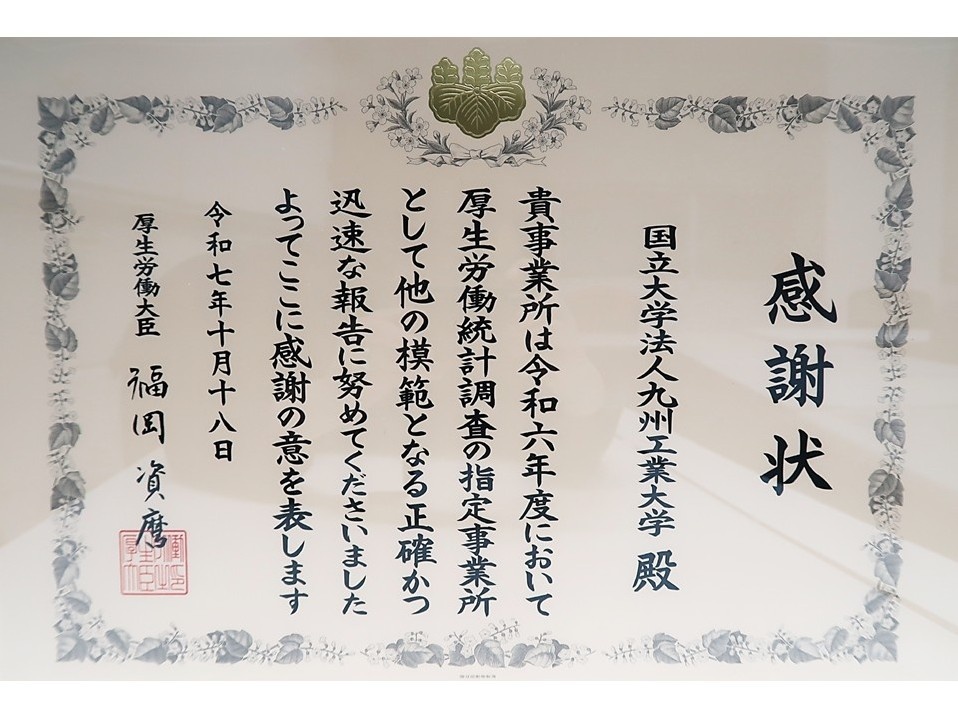 感謝状
国立大学法人九州工業大学 殿
貴事業所は令和六年度において
厚生労働統計調査の指定事業所
として他の模範となる正確かつ
迅速な報告に努めてくださいました
よってここに感謝の意を表します
令和七年十月十八日
厚生労働大臣 福岡 資麿